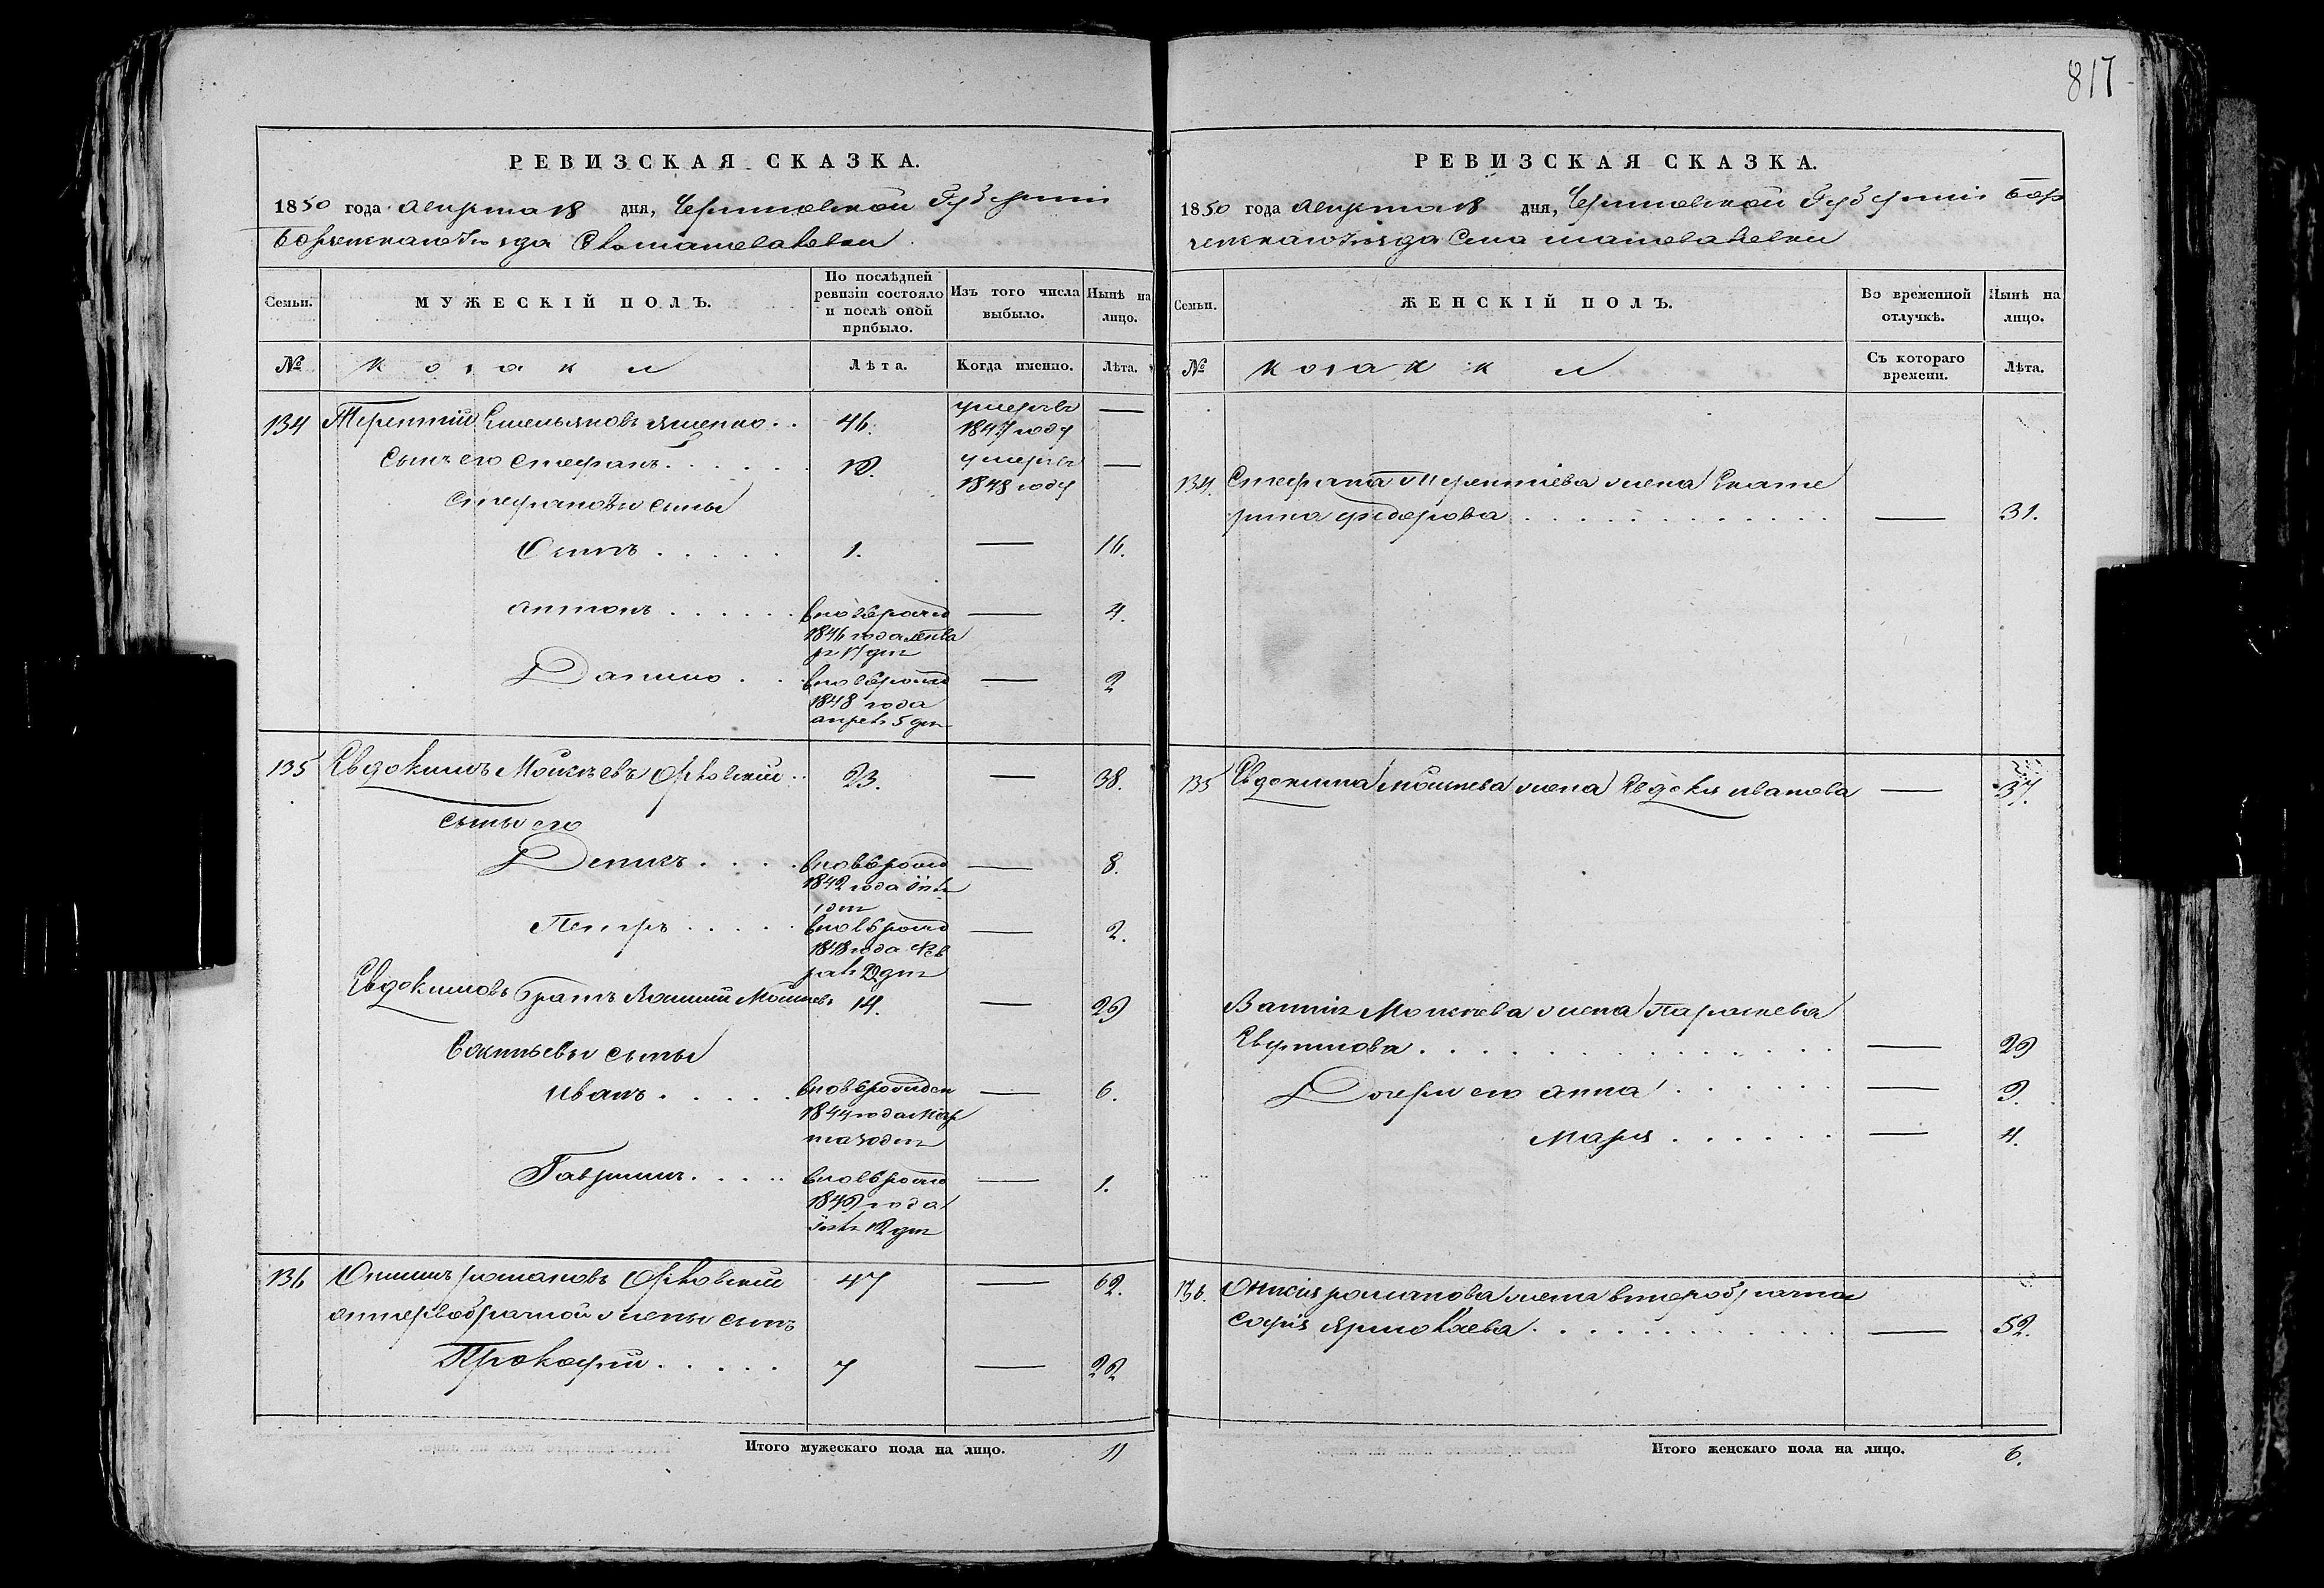 817
РЕВИЗСКАЯ СКАЗКА.
1850 года августа 18 дня, Черниговской Губернии
Борзенскаго Уѣзда Села
Семьи.
МУЖЕСКІЙ ПОЛЪ.
По послѣдней ревизіи состояло и послѣ оной прибыло.
Изъ того числа выбыло.
Нынѣ на лицо.
№
козаки
Лѣта.
Когда именно.
Лѣта.
134 Терентій Емельяновъ Ященко.. 46. умеръ 1847 году —
Сынъ его Стефанъ..... умеръ 1848 году —
Стефановы сыны
Осипъ..... 1. — 16.
антонъ...... вновь рожд — 4.
1846 года
Данило.. вновь рожд — 2
1848 года
апрель 5 дня
135 Евдокимъ Моисѣевъ Орловскій.. 23. — 38.
сыны его
Денисъ..... вновь рожд — 8.
1842 года
1 дня
Петръ..... вновь рожд — 2.
1848 года Фев
дня
Евдокимовъ братъ Моисѣевъ 14. — 29
сыны
иванъ..... вновь рожден — 6.
1844 года мар
та
Гавриилъ..... вновь рожд — 1.
1849 года
12 дня
136 романовъ Орловскій 47 — 62.
от первобрачной жены сынъ
Прокофій..... 7 — 22
Итого мужескаго пола на лицо. 11
РЕВИЗСКАЯ СКАЗКА.
1850 года августа 18 дня, Черниговской Губернии Бор
зенскаго Уѣзда Села
Семьи.
ЖЕНСКІЙ ПОЛЪ.
Во временной отлучкѣ.
Нынѣ на лицо.
№
козачки
Съ котораго времени.
Лѣта.
134. Стефана Терентіева жена Екате
рина федорова............ — 31.
135 Евдокима Моисеева жена Евдокія иванова — 37.
Моисѣева жена Параскева
Евфимова............... — 29
Дочери его анна...... — 9.
Марія...... — 4.
136. романова жена второбрачная
софія Ермолаева............ — 52.
Итого женскаго пола на лицо. 6.